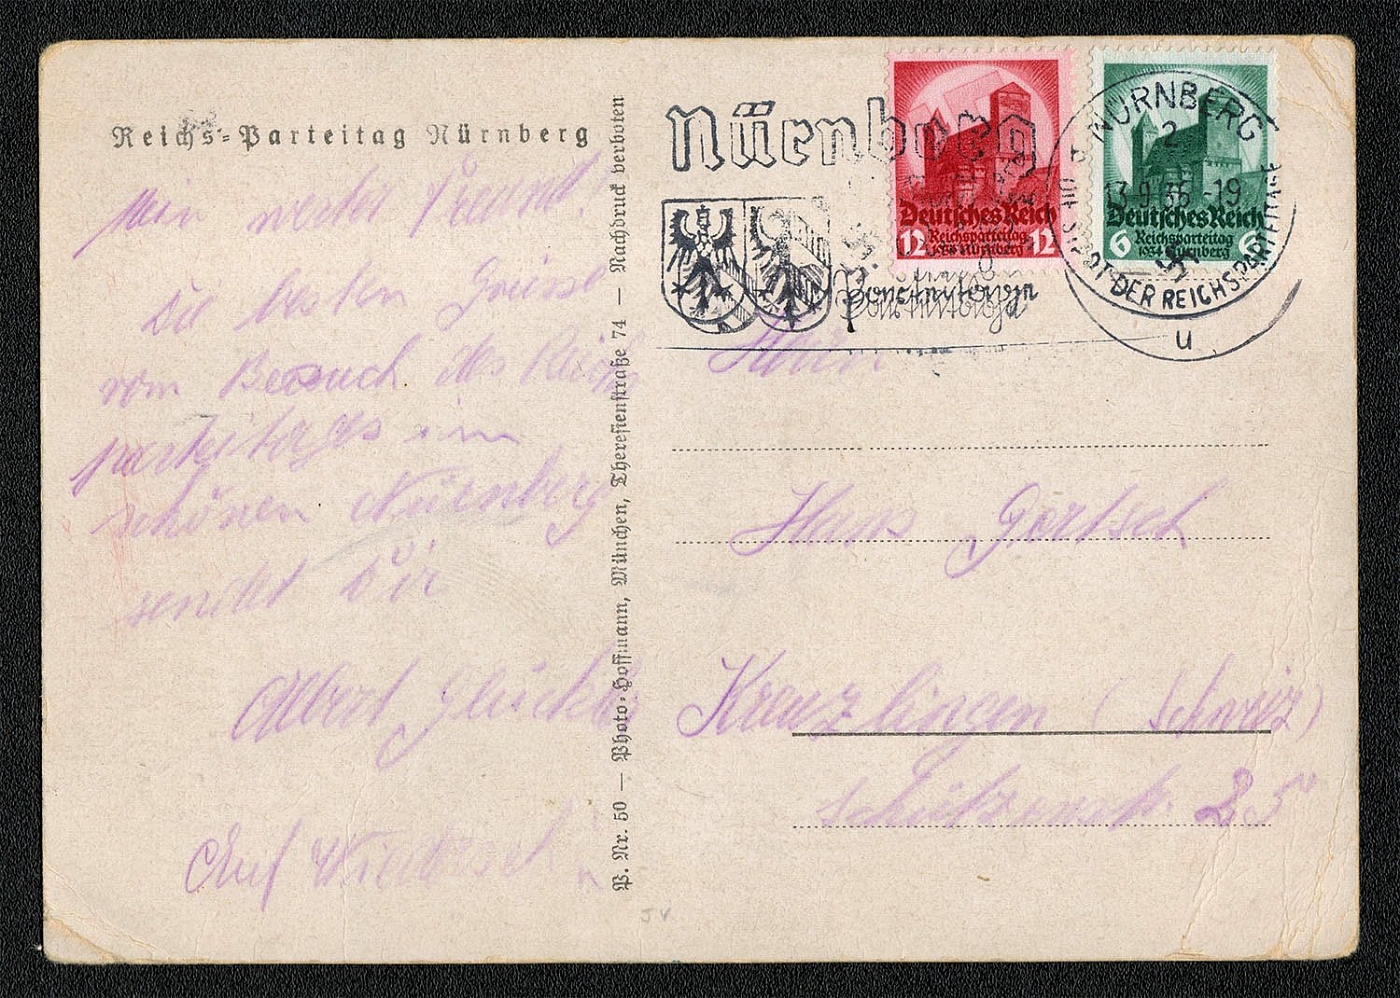 Reichs-Parteitag Nürnberg
Mein werter Freund!
Die besten Grüsse
vom Besuch des Reichs
parteitages im
schönen Nürnberg
sendet Dir
Albert
Auf Wiederseh
P. Nr. 50 — Photo-Hoffmann, München, Theresienstraße 74 — Nachdruck verboten
Nürnberg
Deutsches Reich
12 Reichsparteitag 12
1934 Nürnberg
NÜRNBERG
2
13.9.35-19
STADT DER REICHSPARTEITAGE
u
Deutsches Reich
6 Reichsparteitag 6
1934 Nürnberg
Herrn
Hans Gortsch
Kreuzlingen (Schweiz)
Schützenstr. 25
JV